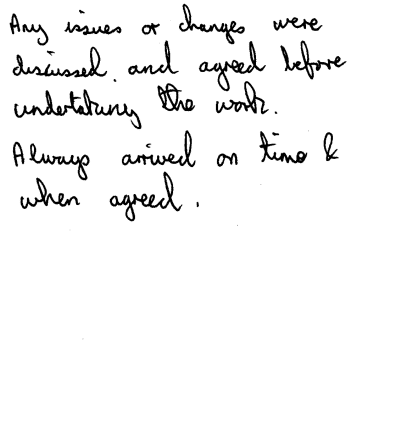 Any issues or changes were
discussed and agreed before
undertaking the work.
Always arrived on time &
when agreed.